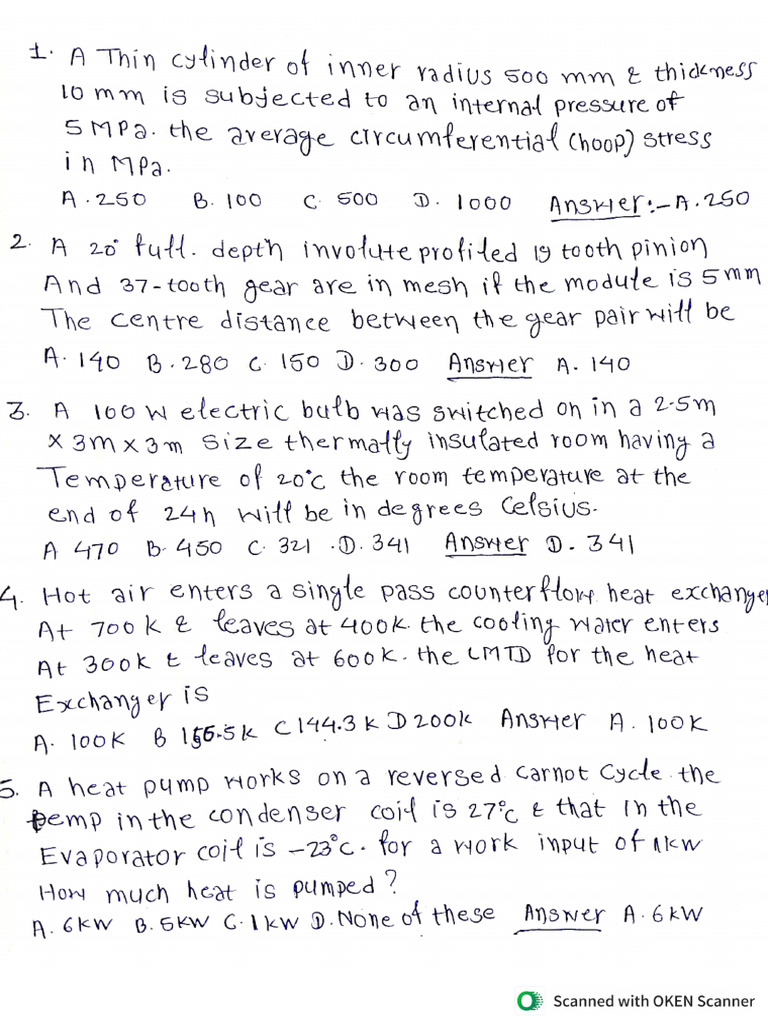 1. A Thin cylinder of inner radius 500 mm & thickness
10 mm is subjected to an internal pressure of
5 MPa. the average circumferential (hoop) stress
in MPa.
A. 250 B. 100 C. 500 D. 1000 Answer:- A. 250
2. A 20° full. depth involute profiled 19 tooth pinion
And 37-tooth gear are in mesh if the module is 5 mm
The centre distance between the gear pair will be
A. 140 B. 280 C. 150 D. 300 Answer A. 140
3. A 100 W electric bulb was switched on in a 2.5m
x 3m x 3m size thermally insulated room having a
Temperature of 20°C the room temperature at the
end of 24h will be in degrees Celsius.
A 470 B. 450 C. 321 .D. 341 Answer D. 341
4. Hot air enters a single pass counterflow heat exchanger
At 700K & leaves at 400K. the cooling water enters
At 300K & leaves at 600K. the LMTD for the heat
Exchanger is
A. 100K B 166.5K C 144.3 K D 200K Answer A. 100K
5. A heat pump works on a reversed Carnot Cycle the
temp in the condenser coil is 27°C & that in the
Evaporator coil is -23°C. for a work input of 1kW
How much heat is pumped?
A. 6KW B. 5KW C. 1KW D. None of these Answer A. 6KW
Scanned with OKEN Scanner